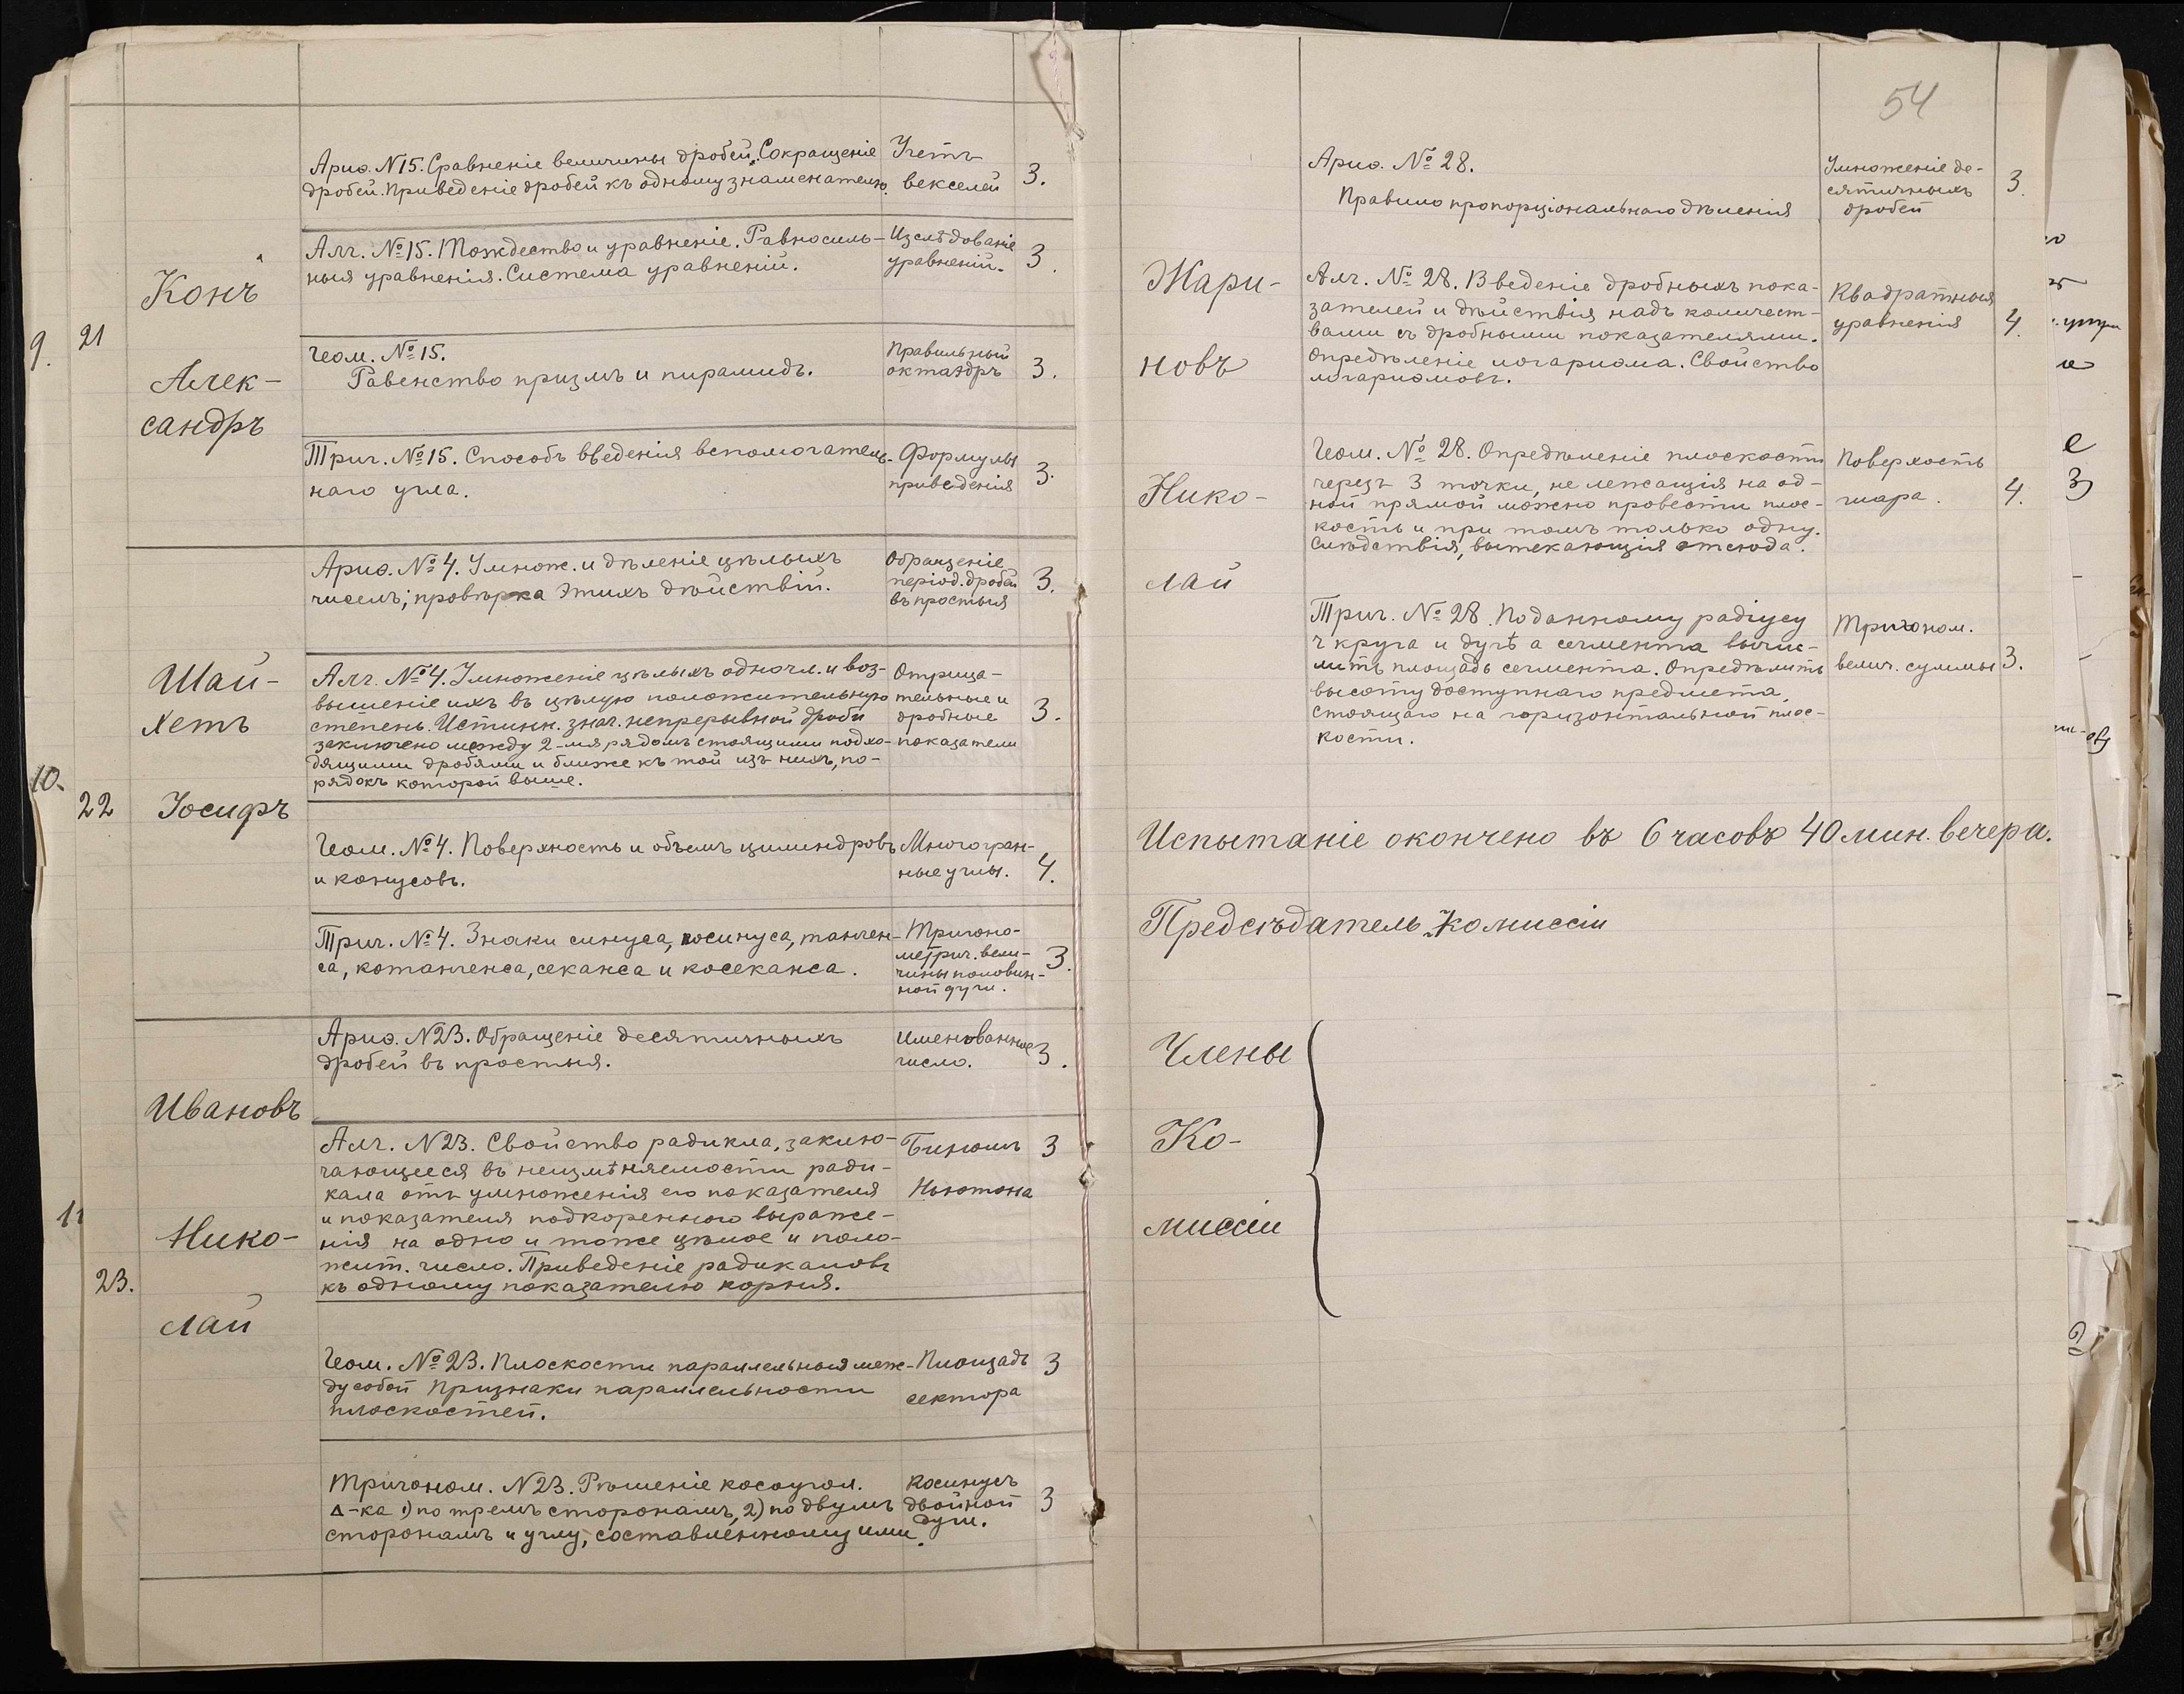 Ариѳ. N15. Сравненіе величины дробей. Сокращеніе
дробей. Приведеніе дробей къ одному знаменателю.
Учетъ
векселей
3.
9.
21
Конъ
Алек-
сандръ
Алг. № 15. Тождество и уравненіе. Равносиль-
ныя уравненія. Система уравненій.
Изслѣдованіе
уравненій.
3.
Геом. № 15.
Равенство призмъ и пирамидъ.
Правильный
октаэдръ
3.
Триг. № 15. Способъ введенія вспомогатель-
наго угла.
Формулы
приведенія
3.
Ариѳ. № 4. Умнож. и дѣленіе цѣлыхъ
чиселъ; провѣрка этихъ дѣйствій.
Обращеніе
період. дробей
въ простыя
3.
10.
22
Шай-
хетъ
Іосифъ
Алг. № 4. Умноженіе цѣлыхъ одночл. и воз-
вышеніе ихъ въ цѣлую положительную
степень. Истинн. знач. непрерывной дроби
заключено между 2-мя рядомъ стоящими подхо-
дящими дробями и ближе къ той изъ нихъ, по-
рядокъ которой выше.
Отрица-
тельные и
дробные
показатели
3.
Геом. № 4. Поверхность и объемъ цилиндровъ
и конусовъ.
Многогран-
ные углы.
4.
Триг. № 4. Знаки синуса, косинуса, танген-
са, котангенса, секанса и косеканса.
Тригоно-
метрич. вели-
чины половин-
ной дуги.
3.
Ариѳ. N23. Обращеніе десятичныхъ
дробей въ простыя.
Именованное
число.
3.
11
23.
Ивановъ
Нико-
лай
Алг. N23. Свойство радикла, заклю-
чающееся въ неизмѣняемости ради-
кала отъ умноженія его показателя
и показателя подкореннаго выраже-
нія на одно и тоже цѣлое и поло-
жит. число. Приведеніе радикаловъ
къ одному показателю корня.
Биномъ
Ньютона
3
Геом. № 23. Плоскости параллельныя меж-
ду собой Признаки параллельности
плоскостей.
Площадь
сектора
3
Тригоном. N23. Рѣшеніе косоугол.
Δ-ка 1) по тремъ сторонамъ, 2) по двумъ
сторонамъ и углу, составленному ими.
Косинусъ
двойной
дуги.
3
54
Ариѳ. № 28.
Правило пропорціональнаго дѣленія
Умноженіе де-
сятичныхъ
дробей
3.
Жари-
новъ
Нико-
лай
Алг. № 28. Введеніе дробныхъ пока-
зателей и дѣйствія надъ количест-
вами съ дробными показателями.
Опредѣленіе логариѳма. Свойство
логариѳмовъ.
Квадратныя
уравненія
4.
Геом. № 28. Опредѣленіе плоскости
черезъ 3 точки, не лежащія на од-
ной прямой можно провести плос-
кость и при томъ только одну.
Слѣдствія, вытекающія отсюда.
Поверхость
шара.
4.
Триг. № 28. По данному радіусу
r круга и дугѣ a сегмента вычис-
лить площадь сегмента. Опредѣлить
высоту доступнаго предмета,
стоящаго на горизонтальной плос-
кости.
Тригоном.
велич. суммы
3.
Испытаніе окончено въ 6 часовъ 40 мин. вечера.
Предсѣдатель Комиссіи
Члены
Ко-
миссіи